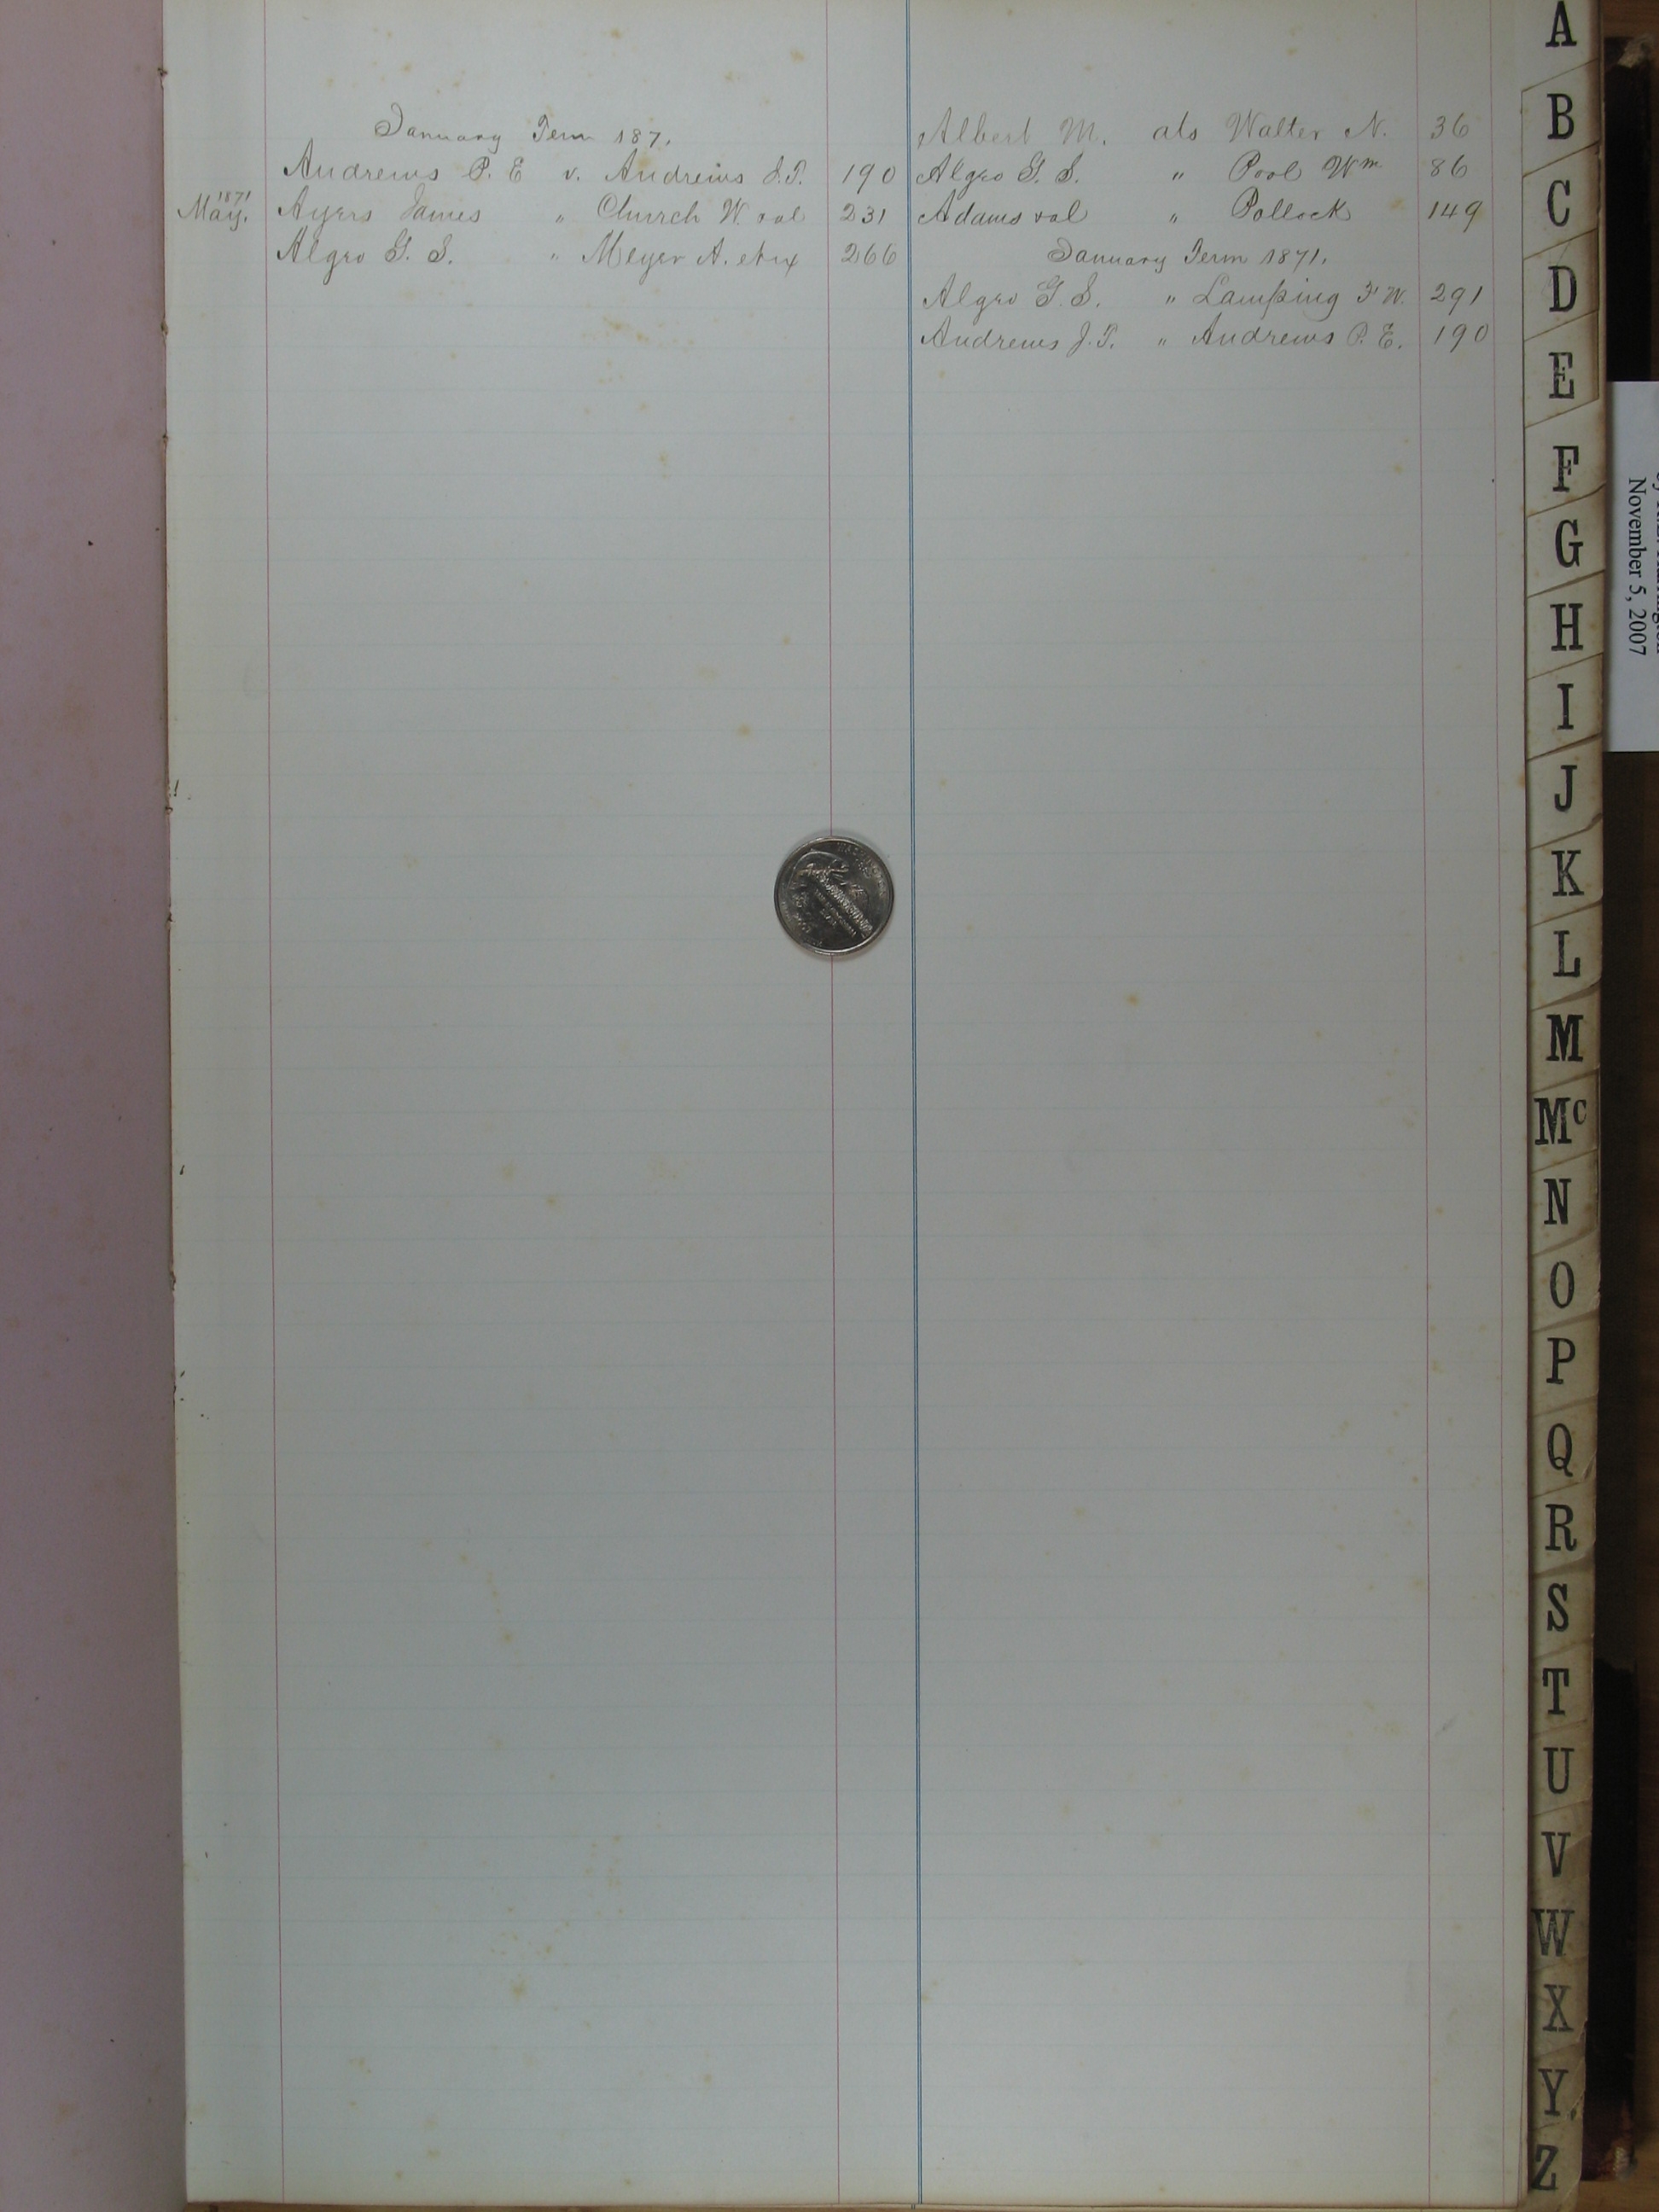 January Term 187.
Andrews P. E v. Andrews J. T. 190
1871
May. Ayers James " Church W. et al 231
Algeo G. S. " Meyer A. et ux 266
Albert M. ats Walter N. 36
Algeo G. S. " Pool Wm 86
Adams et al " Pollock 149
January Term 1871.
Algeo G. S. " Lamping F W. 291
Andrews J. T. " Andrews P. E. 190
A
B
C
D
E
F
G
H
I
J
K
L
M
Mc
N
O
P
Q
R
S
T
U
V
W
X
Y
Z
November 5, 2007